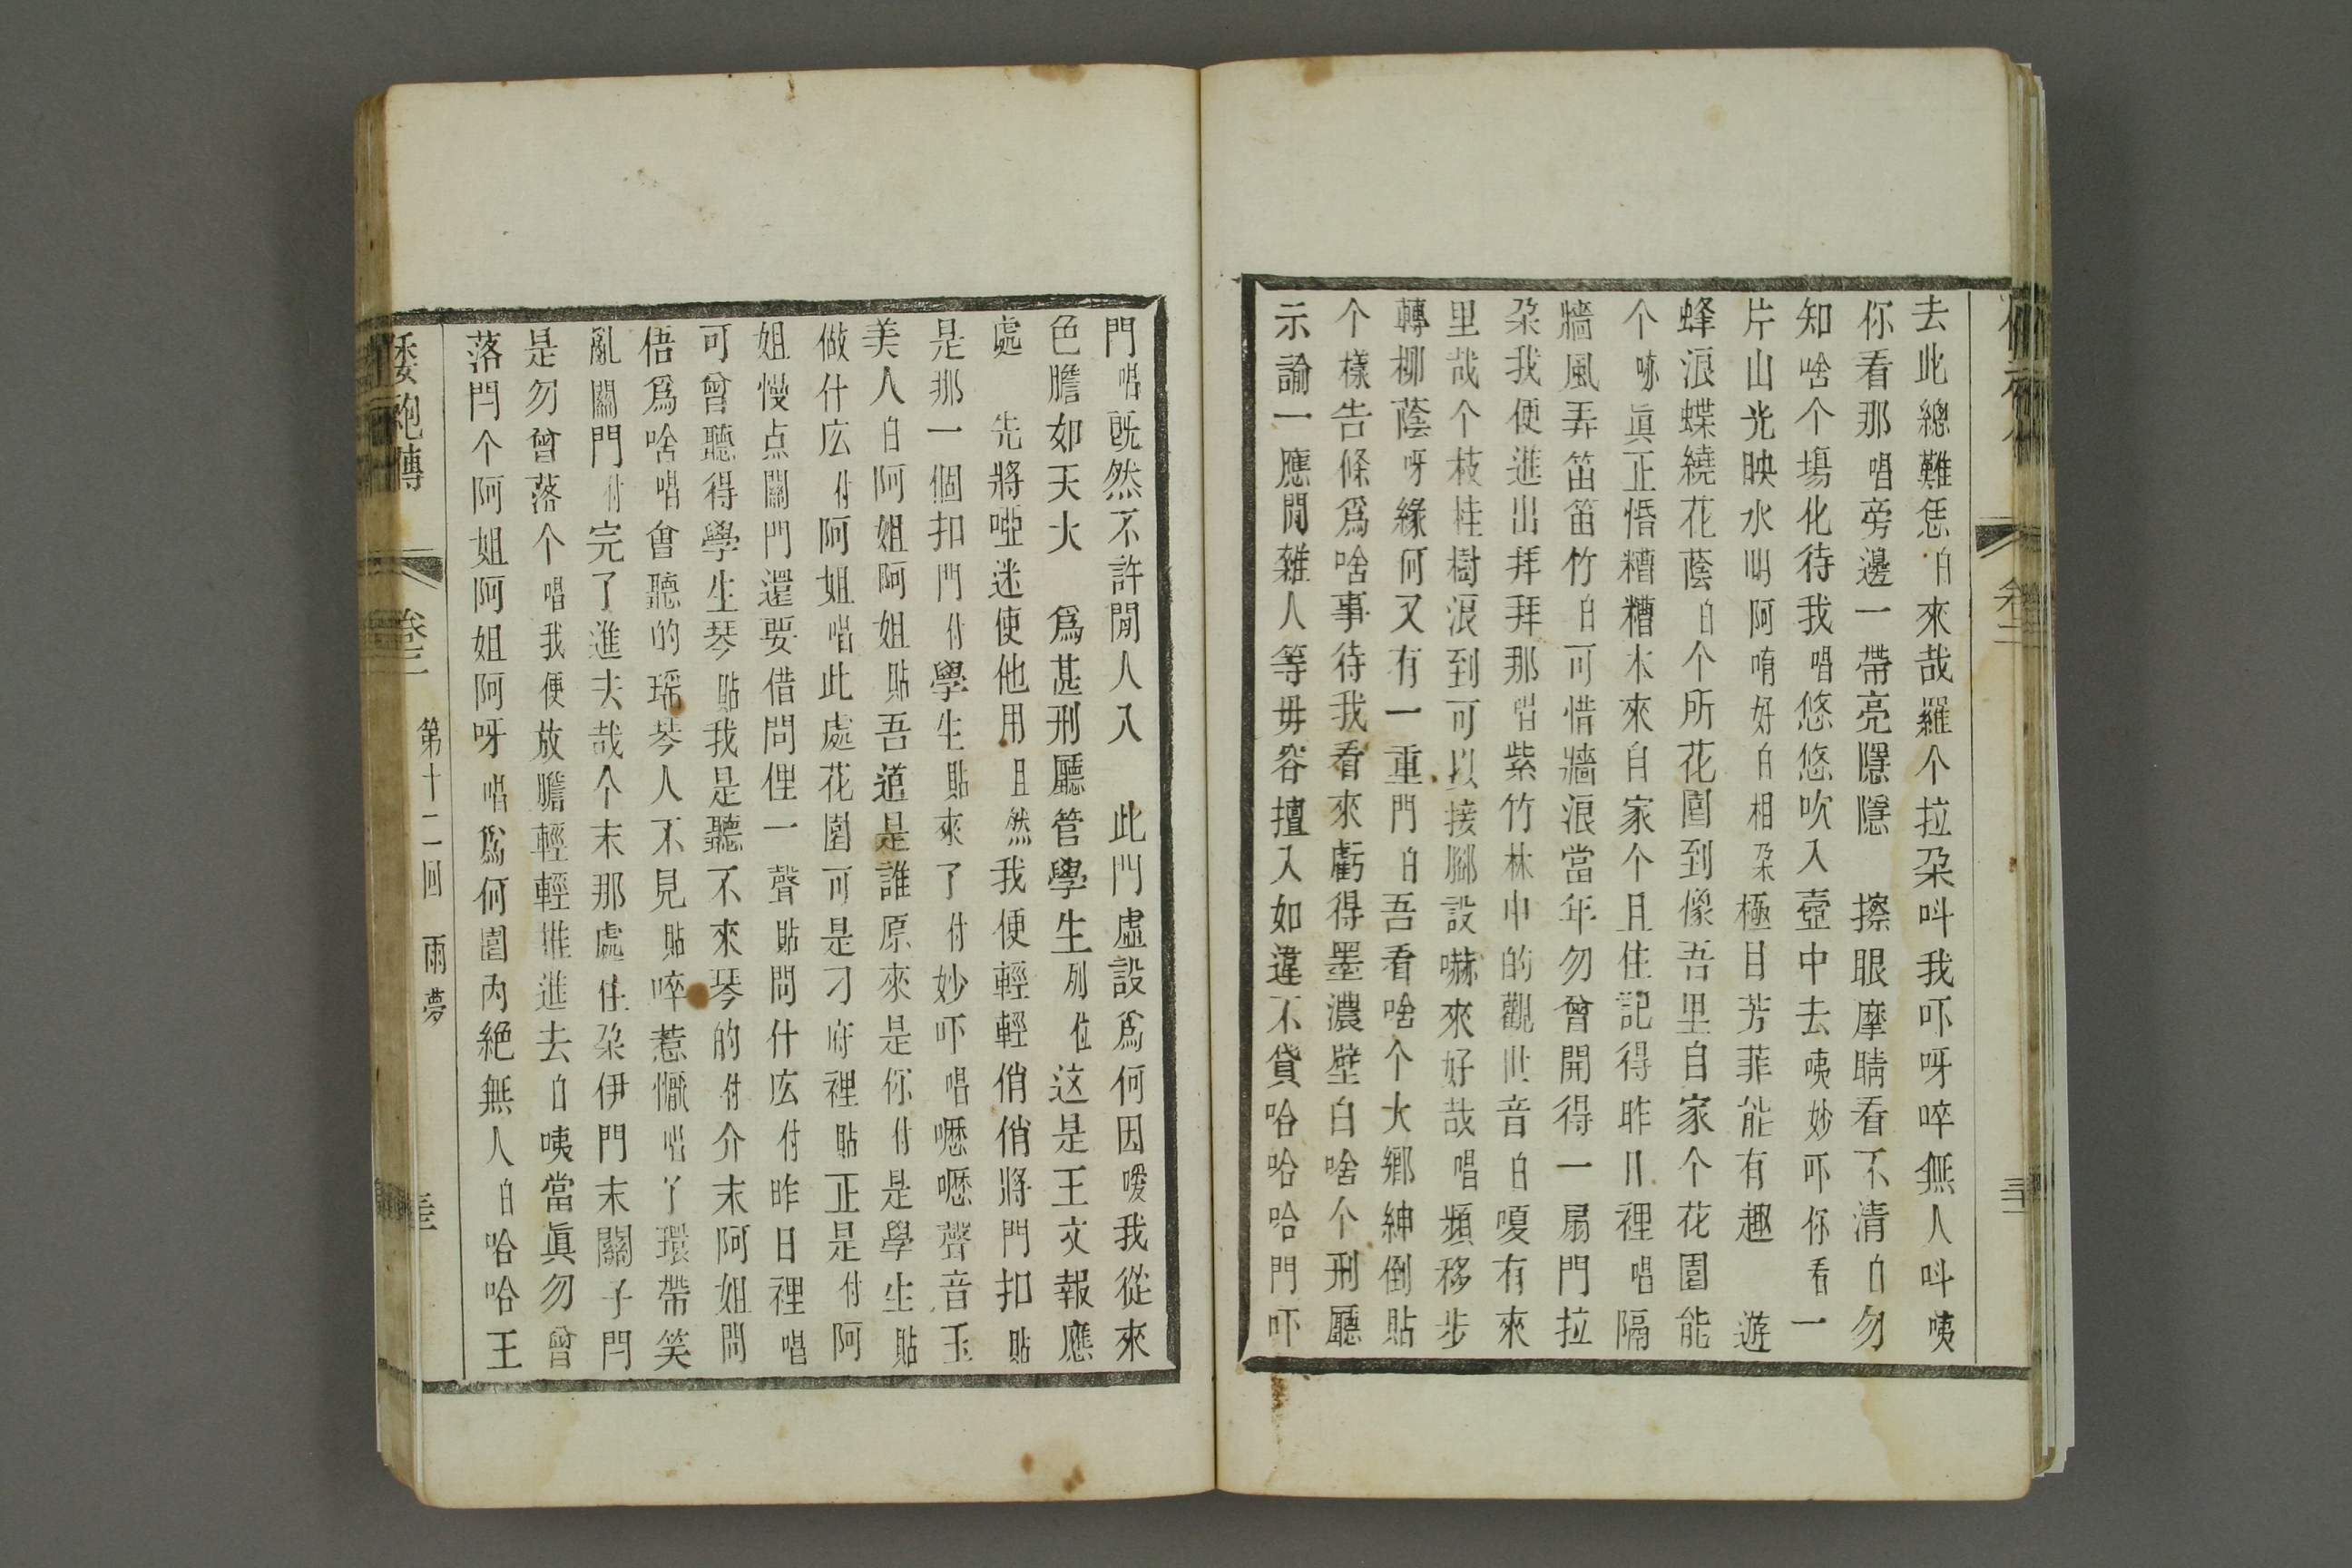 去此總難恁白來哉羅个拉朶呌我吓呀啐無人呌咦
你看那唱旁邊一帶亮隱隱 擦眼摩睛看不清白勿
知啥个塲化待我唱悠悠吹入壺中去咦妙吓你看一
片山光映水明阿唷好白相朶極目芳菲能有趣 遊
蜂浪蝶繞花蔭白个所花園到像吾里自家个花園能
个㖸眞正惛糟糟本來自家个且住記得昨日裡唱隔
牆風弄笛笛竹白可惜牆浪當年勿曾開得一扇門拉
朶我便進出拜拜那唱紫竹林中的觀世音白嗄有來
里哉个枝桂樹浪到可以接腳設嚇來好哉唱頻移步
轉柳蔭呀緣何又有一重門白吾看啥个大鄉紳倒貼
个樣告條爲啥事待我看來虧得墨濃壁白啥个刑廳
示諭一應閒雜人等毋容擅入如違不貸哈哈哈門吓
卷二
門唱既然不許閒人入 此門虛設爲何因嗳我從來
色膽如天大 爲甚刑廳管學生列位这是王文報應
處 先將啞迷使他用且然我便輕輕俏俏將門扣貼
是那一個扣門付學生貼來了付妙吓唱嚦嚦聲音玉
美人白阿姐阿姐貼吾道是誰原來是你付是學生貼
做什庅付阿姐唱此處花園可是刁府裡貼正是付阿
姐慢点關門還要借問俚一聲貼問什庅付昨日裡唱
可曾聽得學生琴貼我是聽不來琴的付介末阿姐問
俉爲啥唱曾聽的瑶琴人不見貼啐惹懨唱丫環帶笑
亂關門付完了進去哉个末那處住朶伊門末關子閂
是勿曾落个唱我便放膽輕輕推進去白咦當眞勿曾
落閂个阿姐阿姐阿呀唱爲何園內絕無人白哈哈王
倭袍傳
卷二
第十二回 雨夢